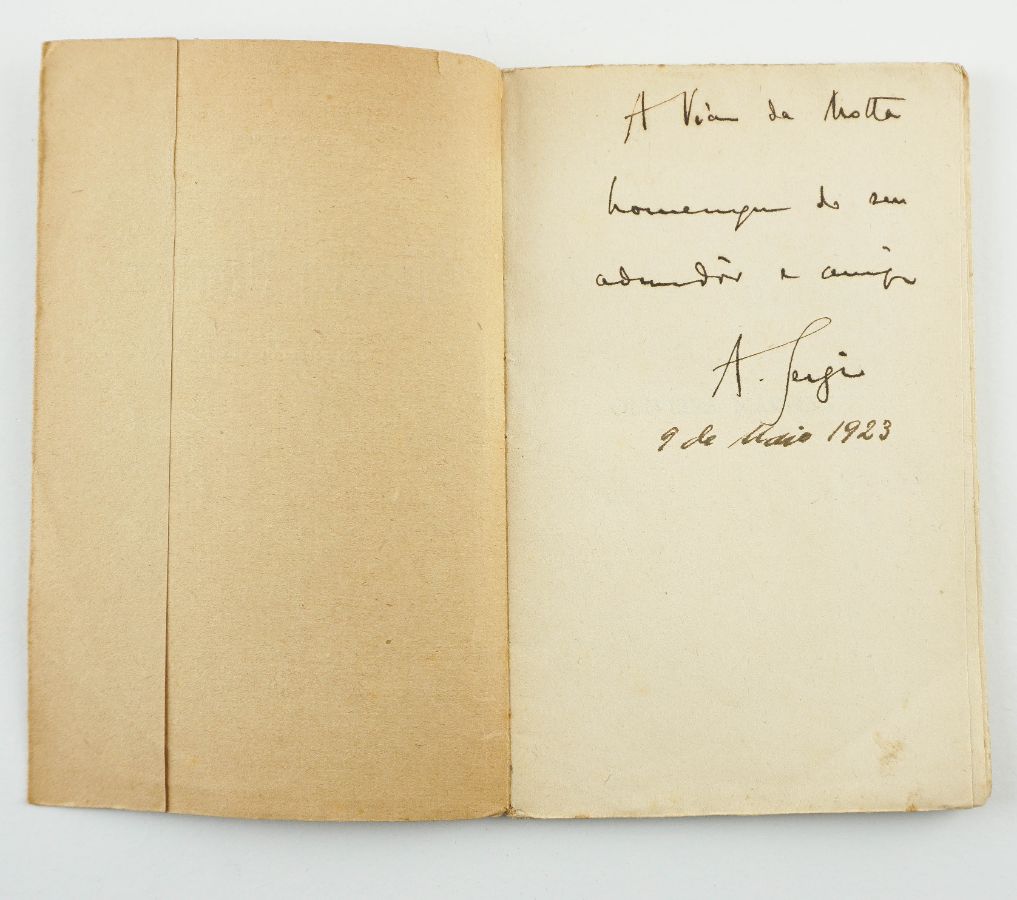 A Viana da Motta
homenagem do seu
admirador e amigo
A. Sergio
9 de Maio 1923